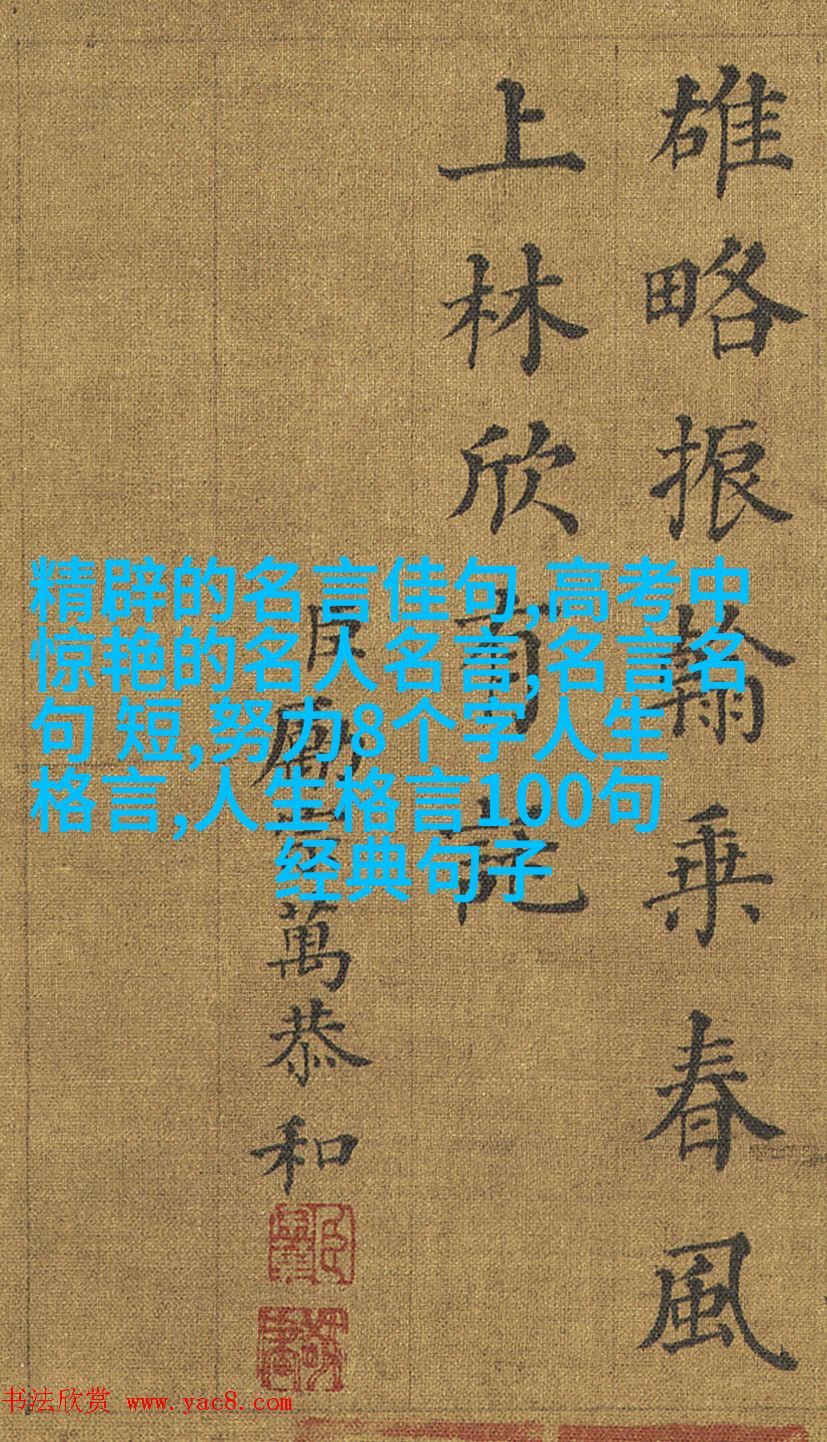 雄略振翰乘春風
上林欣有託
臣勵宗萬恭和
精辟的名言佳句,高考中
惊艳的名人名言,名言名
句 短,努力8个字人生
格言,人生格言100句
经典句子
书法欣赏 www.yac8.com